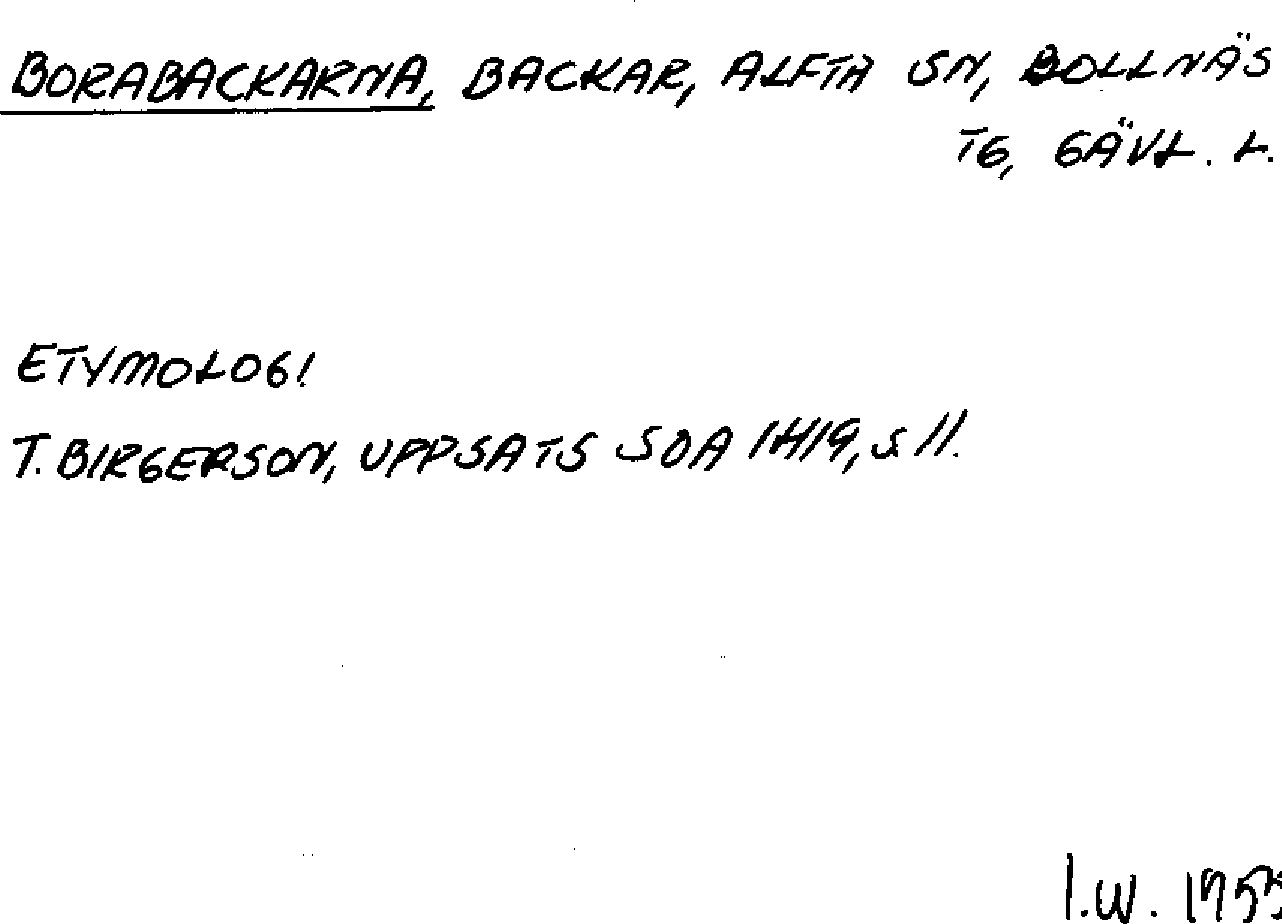 BORABACKARNA, BACKAR, ALFTA SN, BOLLNÄS
TG, GÄVL. L.
ETYMOLOGI
T. BIRGERSON, UPPSATS SOA 1419, S 11.
I.W. 1955